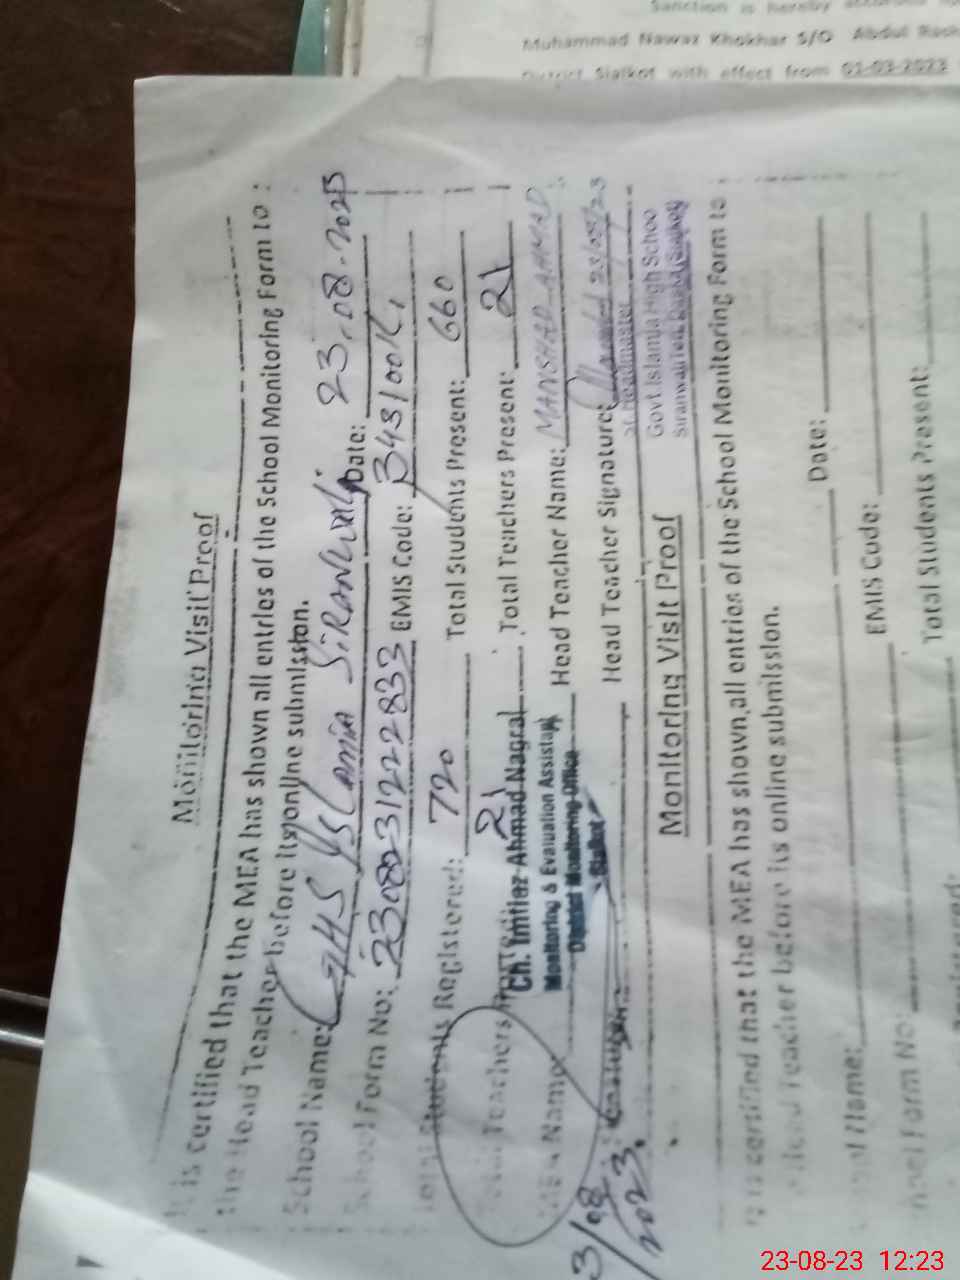 Sanction is hereby
Muhammad Nawaz Khokhar S/O Abdul
District Sialkot with effect from 01-03-2023
Monitoring Visit Proof
It is certified that the MEA has shown all entries of the School Monitoring Form to
the Head Teacher before its online submission.
School Name: GHS Islamia Siranwali Date: 23.08.2023
School Form No: 2308231222833 EMIS Code:
Total Students Registered: 720 Total Students Present: 660
Total Teachers 21 Total Teachers Present: 21
Ch. Imtiaz Ahmad Nagral
Monitoring & Evaluation Assistant
District Monitoring Office
Sialkot
MEA Name: Head Teacher Name: MANSHAD AHMAD
Head Teacher Signature: 23/08/23
Sr. Headmaster
Govt. Islamia High Schoo
Siranwali Teh. Daska (Sialkot)
23/08
2023.
Monitoring Visit Proof
It is certified that the MEA has shown all entries of the School Monitoring Form to
Head Teacher before its online submission.
School Name: Date:
School Form No: EMIS Code:
Total Students Present:
23-08-23 12:23